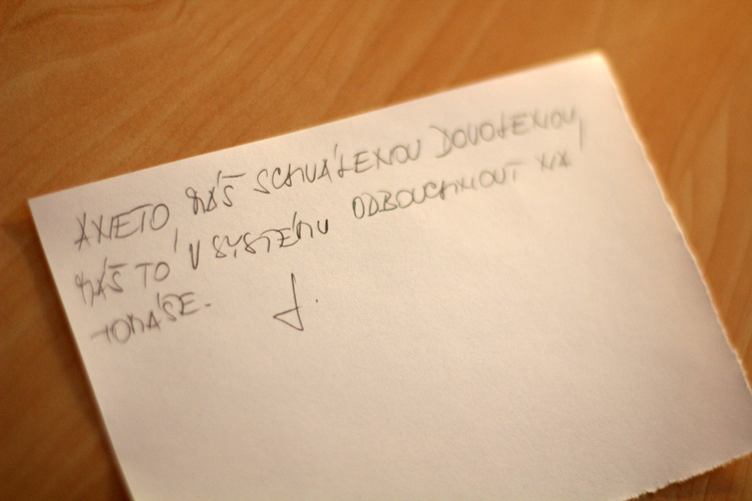 ANETO MÁŠ SCHVÁLENOU DOVOLENOU,
MÁŠ TO V SYSTÉMU ODBOUCHNOUT NA
TOMÁŠE. J.